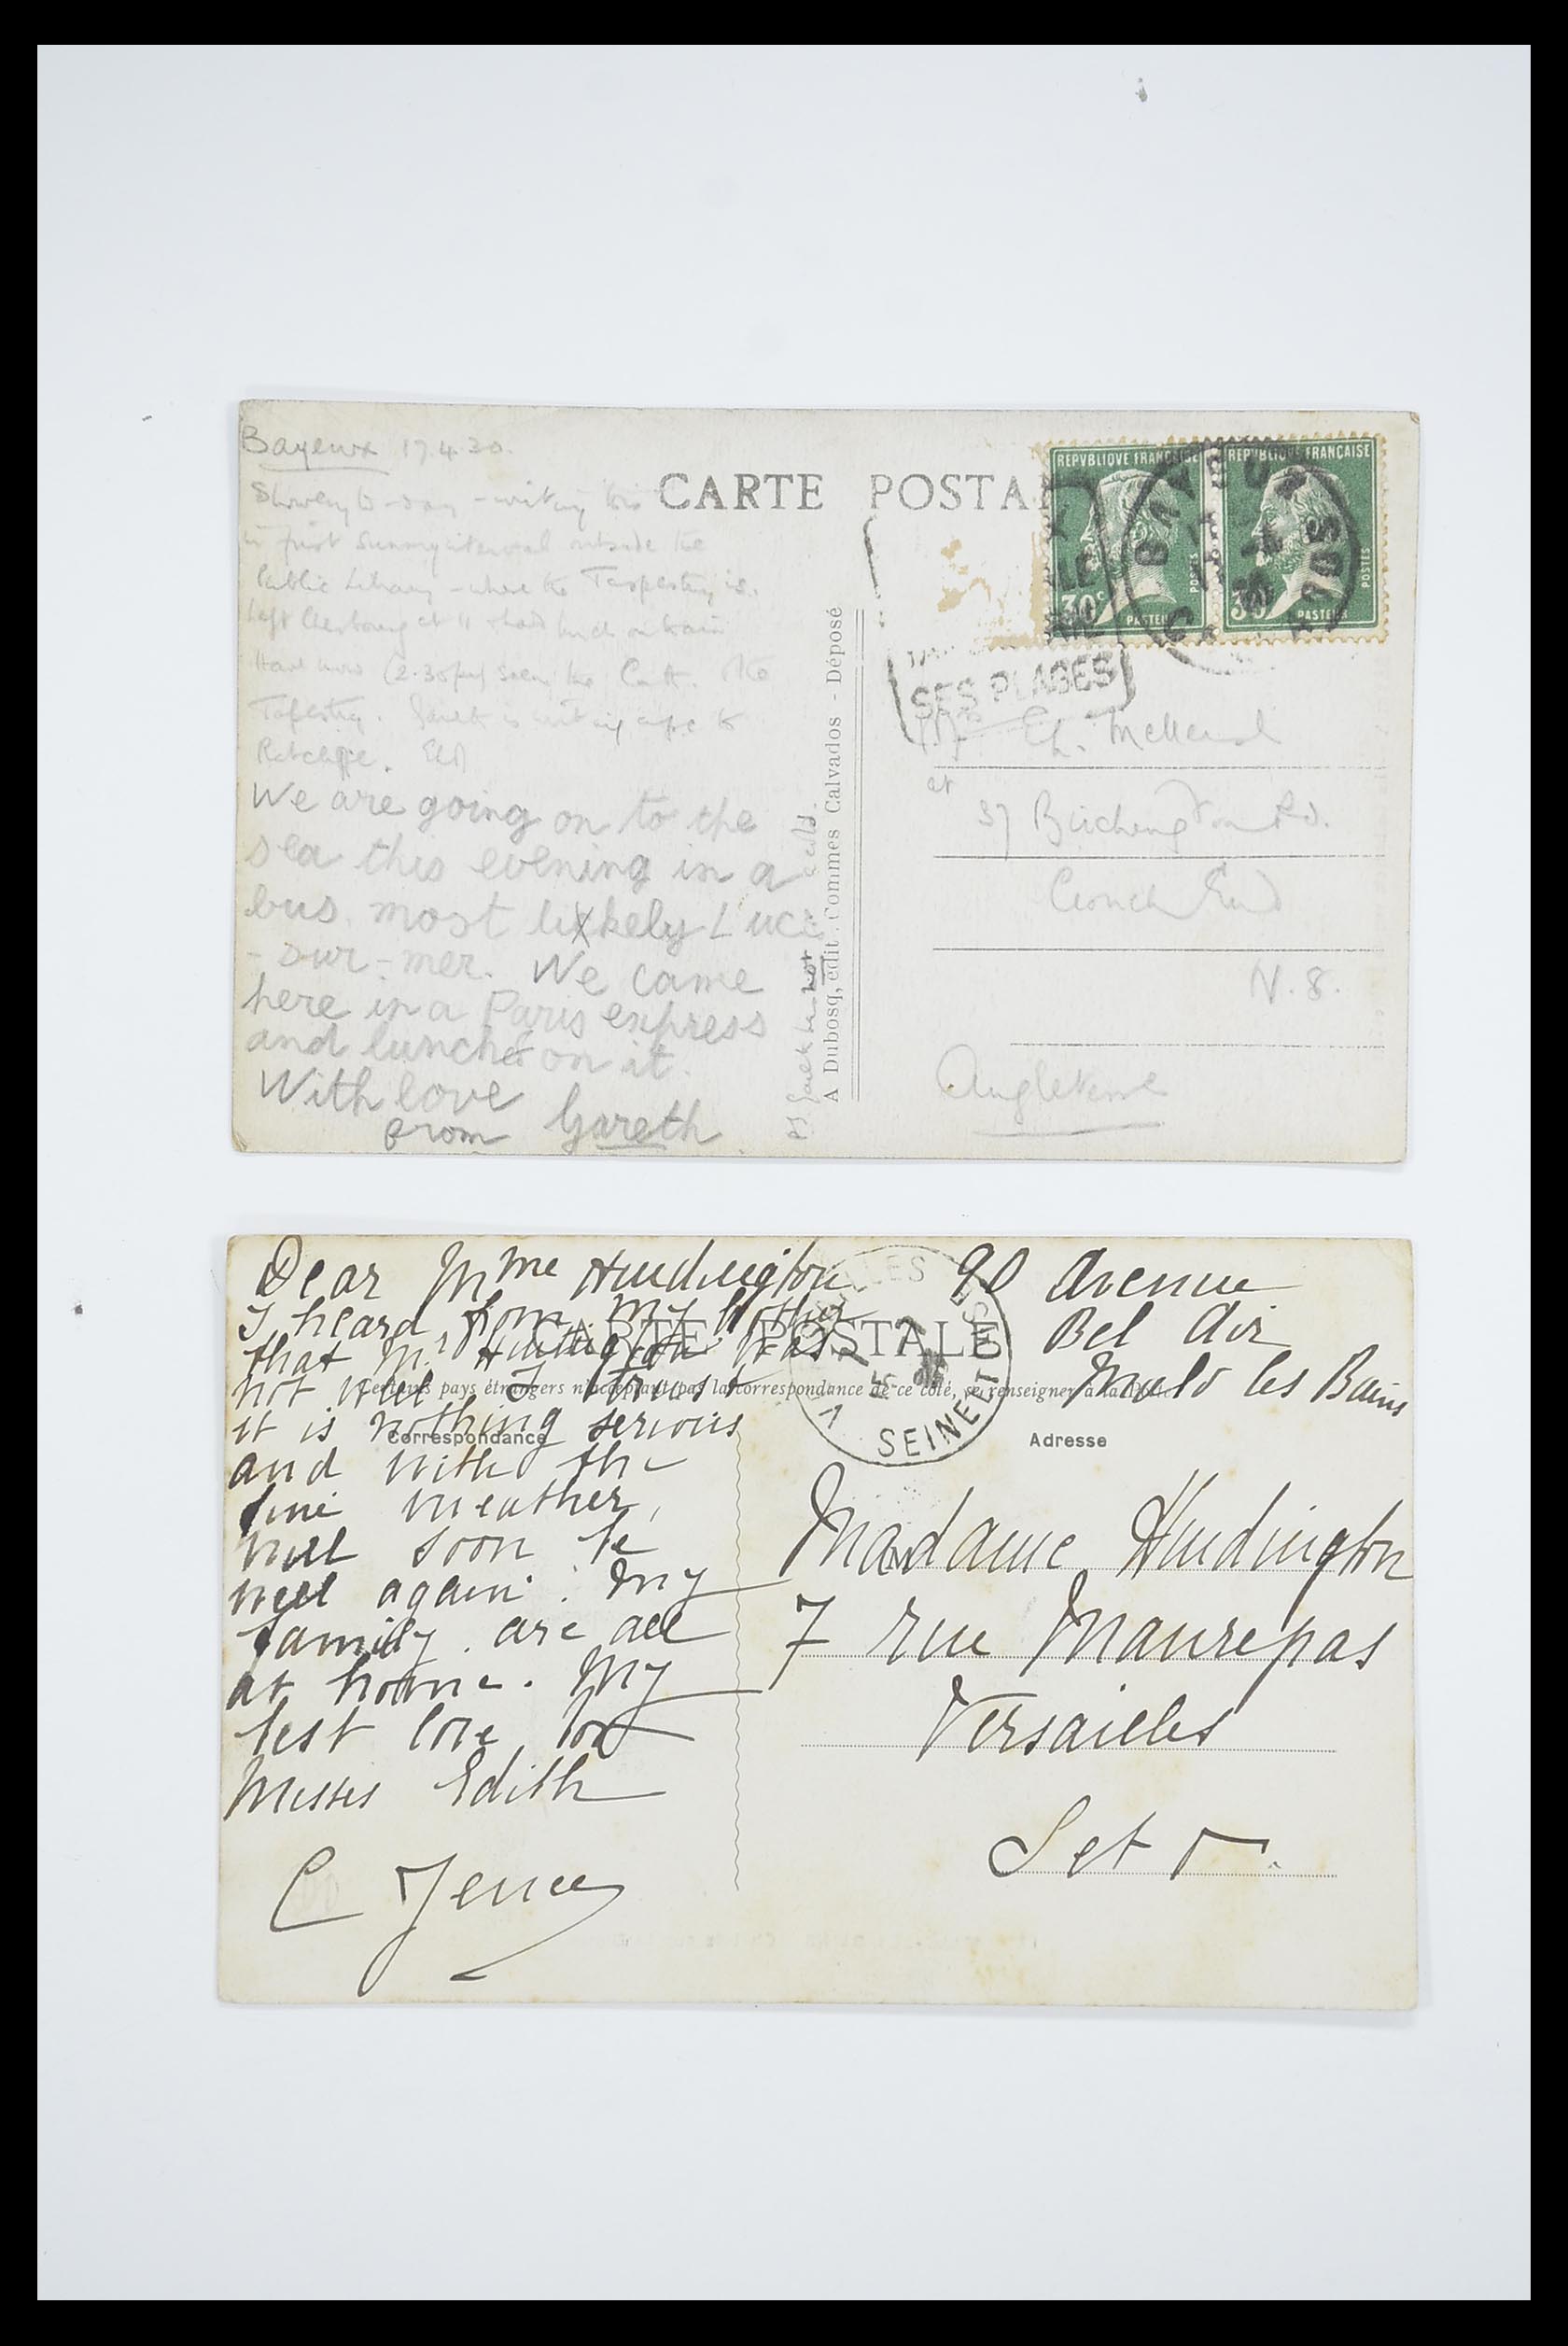 Bayeux 17.4.30.
Showery to-day - writing this
in first sunny interval outside the
Public Library - where the Tapestry is.
Left Cherbourg at 11 & had lunch on train
Have now (2.30pm) seen the Cath. & the
Tapestry. Gareth is writing a p.c. to
Ratcliffe.
We are going on to the
sea this evening in a
bus. most likely Luc
- sur-mer. We came
here in a Paris express
and lunched on it.
With love
from Gareth
PS. Gareth has not cold.
CARTE POSTA
A Dubosq, édit. Commes Calvados - Déposé
REPVBLIQVE FRANÇAISE
30c
POSTES
PASTEUR
REPVBLIQVE FRANÇAISE
30
POSTES
PASTEUR
BAYEUX
CALVADOS
SES PLAGES
at
37 Birchington Rd.
Crouch End
N. 8.
Angleterre
Dear Mme Huddington
I heard from my brother
that Mr Huddington was
not well I trust
it is nothing serious
and with the
fine weather,
will soon be
well again. My
family are all
at home. My
best love for
Misses Edith
CARTE POSTALE
Certains pays étrangers n'acceptant pas la correspondance de ce côté, se renseigner à la Poste
Correspondance
Adresse
VERSAILLES
SEINE ET
90 Avenue
Bel Air
Malo les Bains
Madame Huddington
7 rue Maurepas
Versailles
S et O.